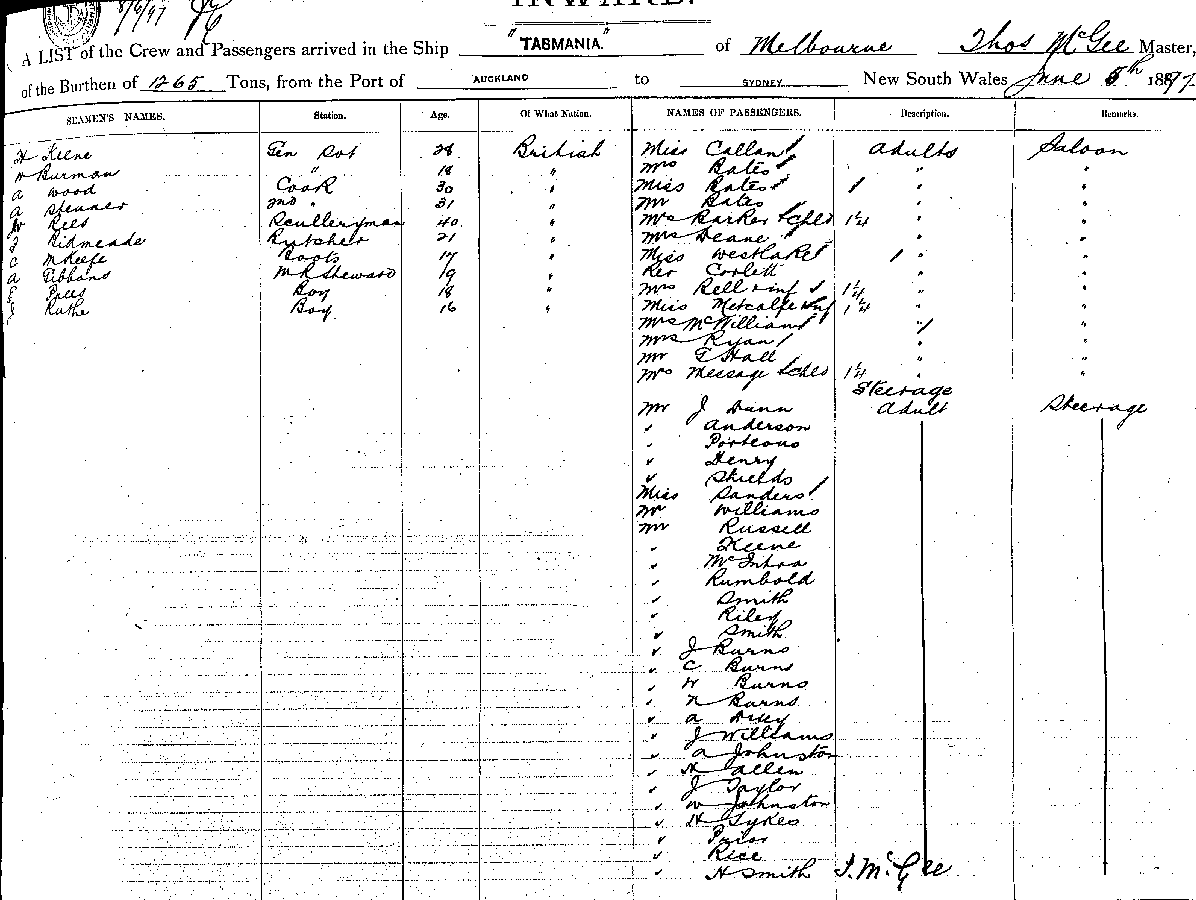 INWARD.
8/6/97
A LIST of the Crew and Passengers arrived in the Ship "TASMANIA." of Melbourne Thos McGee Master,
of the Burthen of 1265 Tons, from the Port of AUCKLAND to SYDNEY New South Wales June 5th 1897.
SEAMEN'S NAMES. Station. Age. Of What Nation. NAMES OF PASSENGERS. Description. Remarks.
H Keene Gen Sot 28 British Miss Callan Adults Saloon
Burman " 18 " Mrs Bates " "
A Wood Cook 30 " Miss Bates 1 " "
A Spenner 2nd " 31 " Mr Bates " "
W Rees Scullery man 40 " Mrs Barker & chld 1¼ " "
J Ridmeade Butcher 21 " Mrs Deane " "
C McKeefe Boots 17 " Miss Westlake 1 " "
A Gibbons M R Steward 19 " Rev Corlett " "
Boy 18 " Mrs Bell & inf 1¼ " "
Ruthe Boy 16 " Miss Metcalfe & inf 1¼ " "
Mrs McWilliam " "
Mrs Ryan " "
Mr G Hall " "
Mrs Message & chld 1¼ " "
Steerage
Mr J Dunn Adult Steerage
" Anderson
" Porteous
" Henry
" Shields
Miss Sanders
Mr Williams
Mr Russell
" Keene
"
" Rumbold
" Smith
" Riley
" Smith
" J Burns
" C Burns
" W Burns
" N Burns
" A
" J Williams
" A Johnston
" H Allen
" J Taylor
" W Johnston
" H Sykes
" Prior
" Rice
" H Smith T. McGee